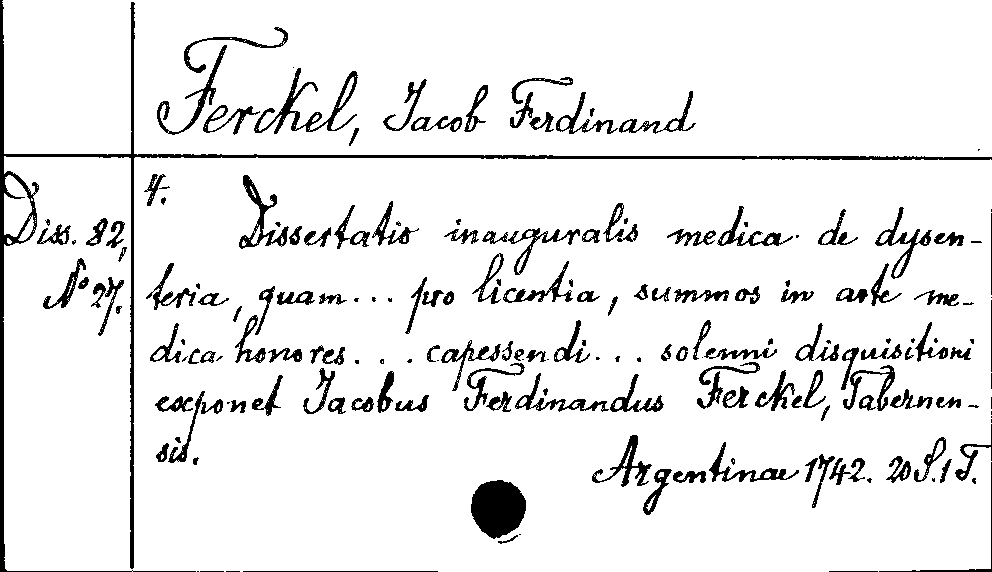 Ferckel, Jacob Ferdinand
Diss. 82,
No 27.
4.
Dissertatio inauguralis medica de dysen-
teria, quam... pro licentia, summos in arte me-
dica honores... capessendi... solenni disquisitioni
exponet Jacobus Ferdinandus Ferckel, Tabernen-
sis.
Argentinae 1742. 20 S. 1 T.